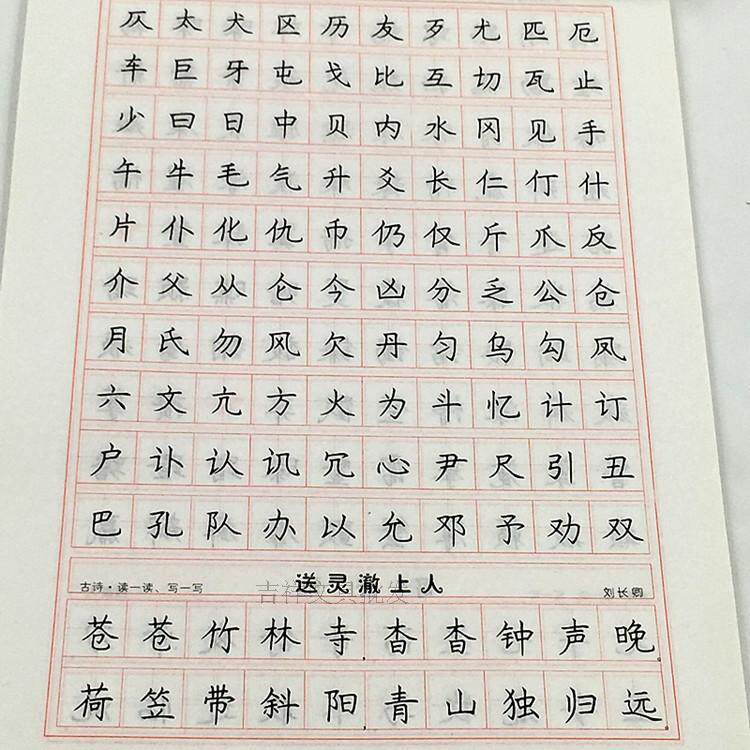 仄太犬区历友歹尤匹厄
车巨牙屯戈比互切瓦止
少曰日中贝内水冈见手
午牛毛气升爻长仁仃什
片仆化仇币仍仅斤爪反
介父从仑今凶分乏公仓
月氏勿风欠丹匀乌勾凤
六文亢方火为斗忆计订
户讣认讥冗心尹尺引丑
巴孔队办以允邓予劝双
古诗·读一读、写一写 送灵澈上人 刘长卿
吉祥文具批发
苍苍竹林寺，杳杳钟声晚。
荷笠带斜阳，青山独归远。